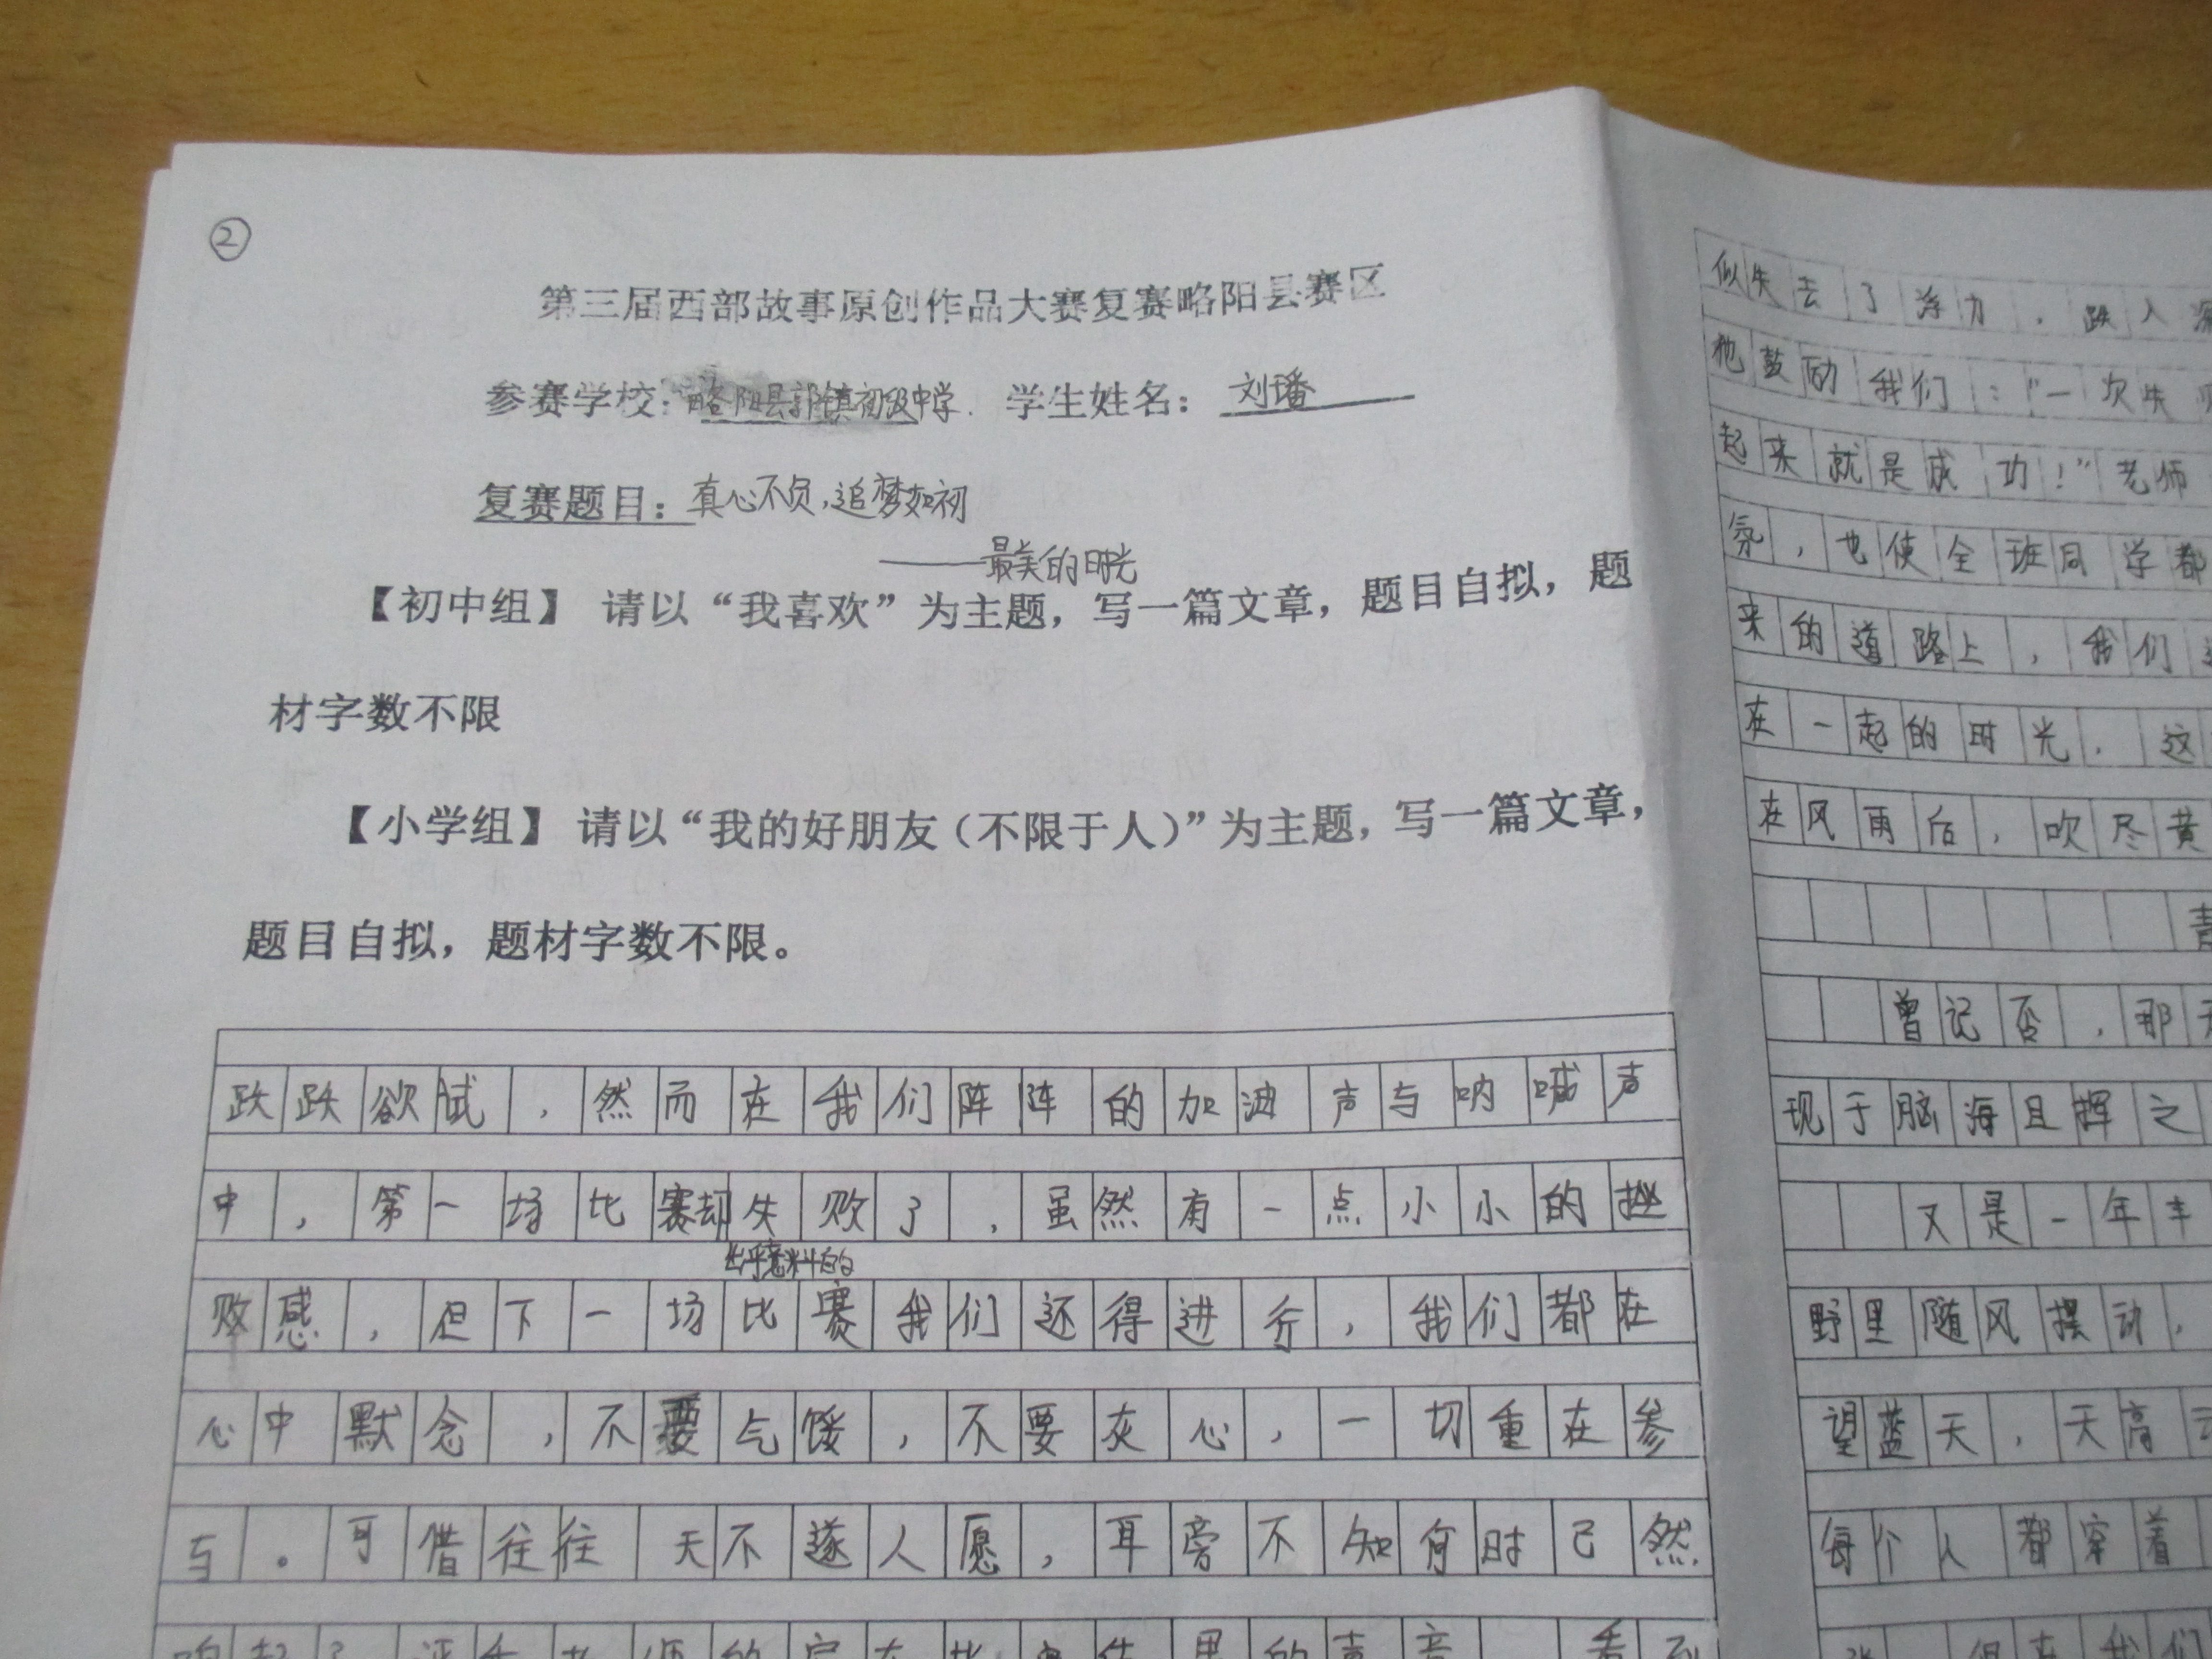 ②
第三届西部故事原创作品大赛复赛略阳县赛区
参赛学校：略阳县郭镇初级中学. 学生姓名：刘璠
复赛题目：真心不负，追梦如初
——最美的时光
【初中组】 请以“我喜欢”为主题，写一篇文章，题目自拟，题
材字数不限
【小学组】 请以“我的好朋友（不限于人）”为主题，写一篇文章，
题目自拟，题材字数不限。
跃跃欲试，然而在我们阵阵的加油声与呐喊声
中，第一场比赛却失败了，虽然有一点小小的挫
出乎意料的
败感，但下一场比赛我们还得进行，我们都在
心中默念，不要气馁，不要灰心，一切重在参
与。可惜往往天不遂人愿，耳旁不知何时已然
似失去了浮力，跌入
他鼓励我们：“一次失
起来就是成功！”老师
氛，也使全班同学都
来的道路上，我们
在一起的时光．这
在风雨后，吹尽黄
曾记否，那
现于脑海且挥之
又是一年丰
野里随风摆动，
望蓝天，天高
每个人都穿着